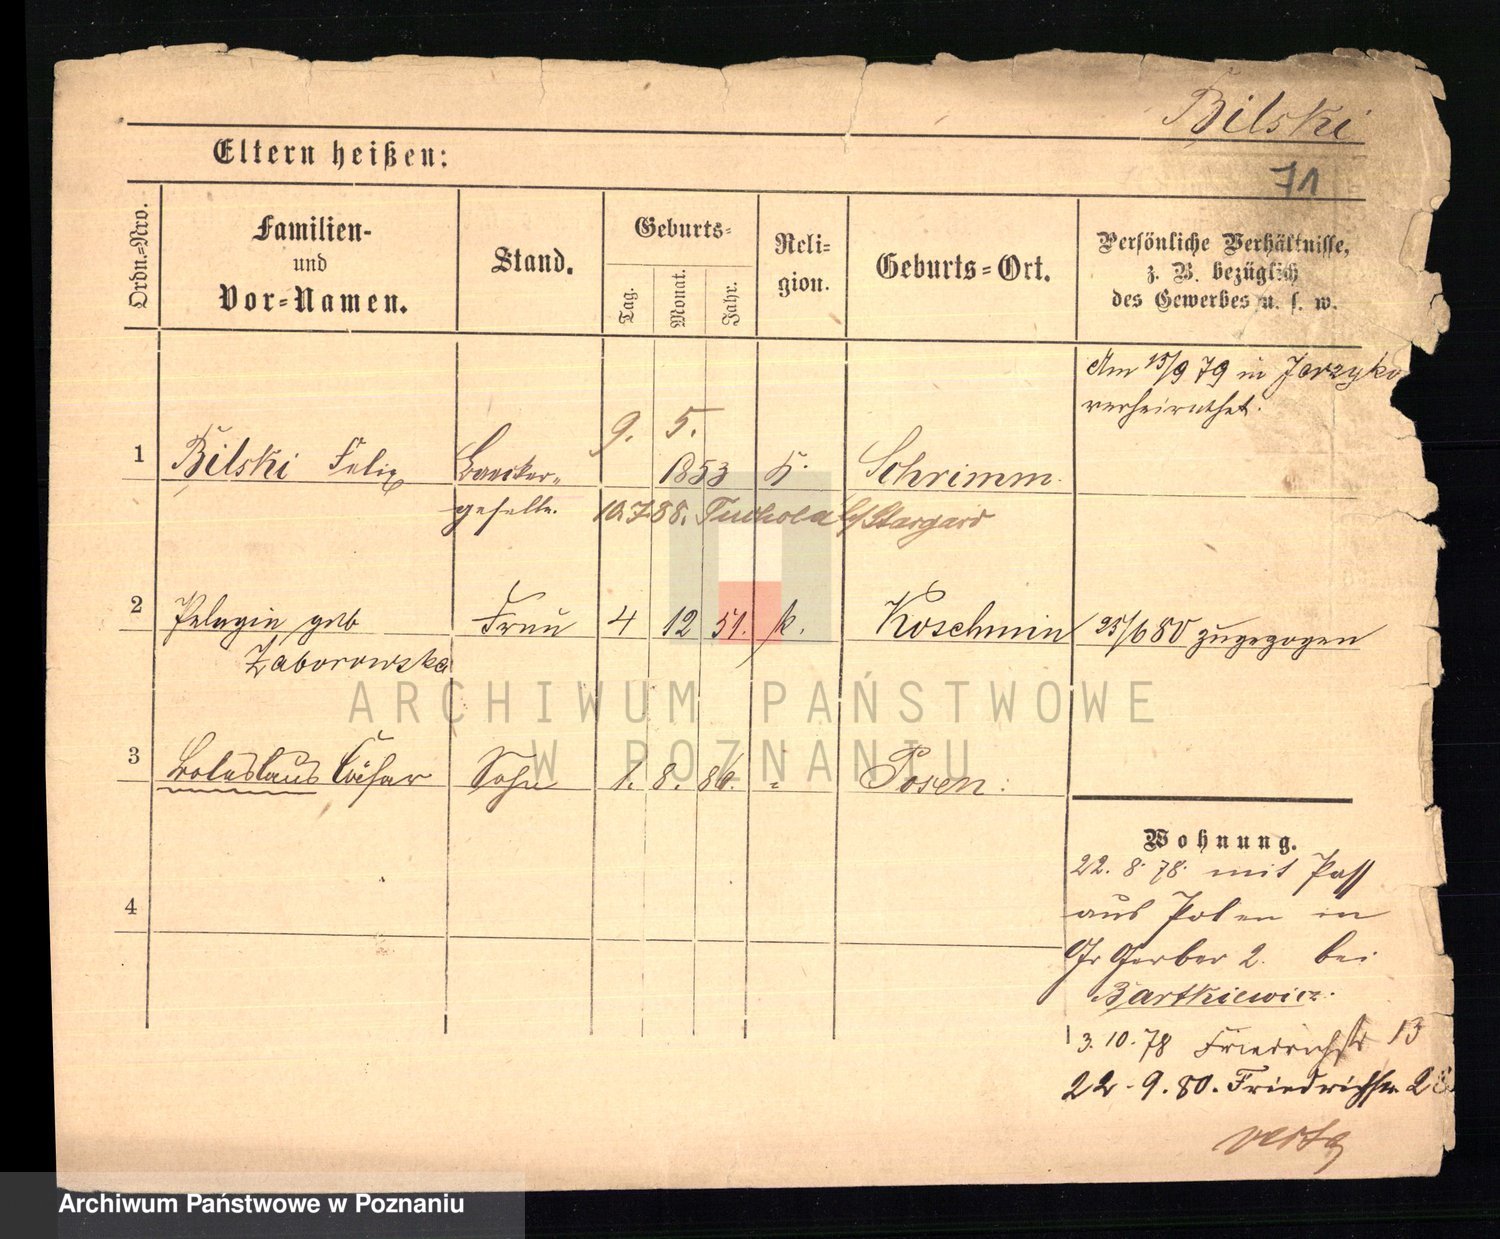 Bilski
71
Eltern heißen:
Ordn.-Nro.
Familien-
und
Vor-Namen.
Stand.
Geburts-
Tag.
Monat.
Jahr.
Reli-
gion.
Geburts-Ort.
Persönliche Verhältnisse,
z. B. bezüglich
des Gewerbes u. s. w.
Am 15/9 79 in
verheirathet.
9. 5.
1 Bilski Felix Baecker- 1853 K. Schrimm
geselle. 10.7.88. Tuchola b/Stargard
2 Pelagia geb Frau 4 12 51. k. Koschmin 25/6 80 zugezogen
Zaborowska
3 Boleslaus Cäsar Sohn 1. 8. 86. " Posen.
4
Wohnung.
22. 8. 78. mit Pass
aus Polen in
Gr Gerber 2. bei
Bartkiewicz.
3. 10. 78 Friedrichstr 13
22. 9. 80. Friedrichstr.
ARCHIWUM PAŃSTWOWE
W POZNANIU
Archiwum Państwowe w Poznaniu